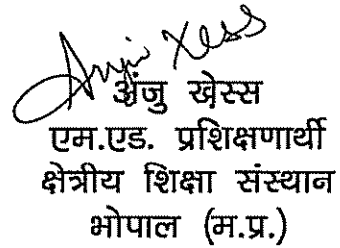 Anju Xess
अंजु खेस्स
एम.एड. प्रशिक्षणार्थी
क्षेत्रीय शिक्षा संस्थान
भोपाल (म.प्र.)